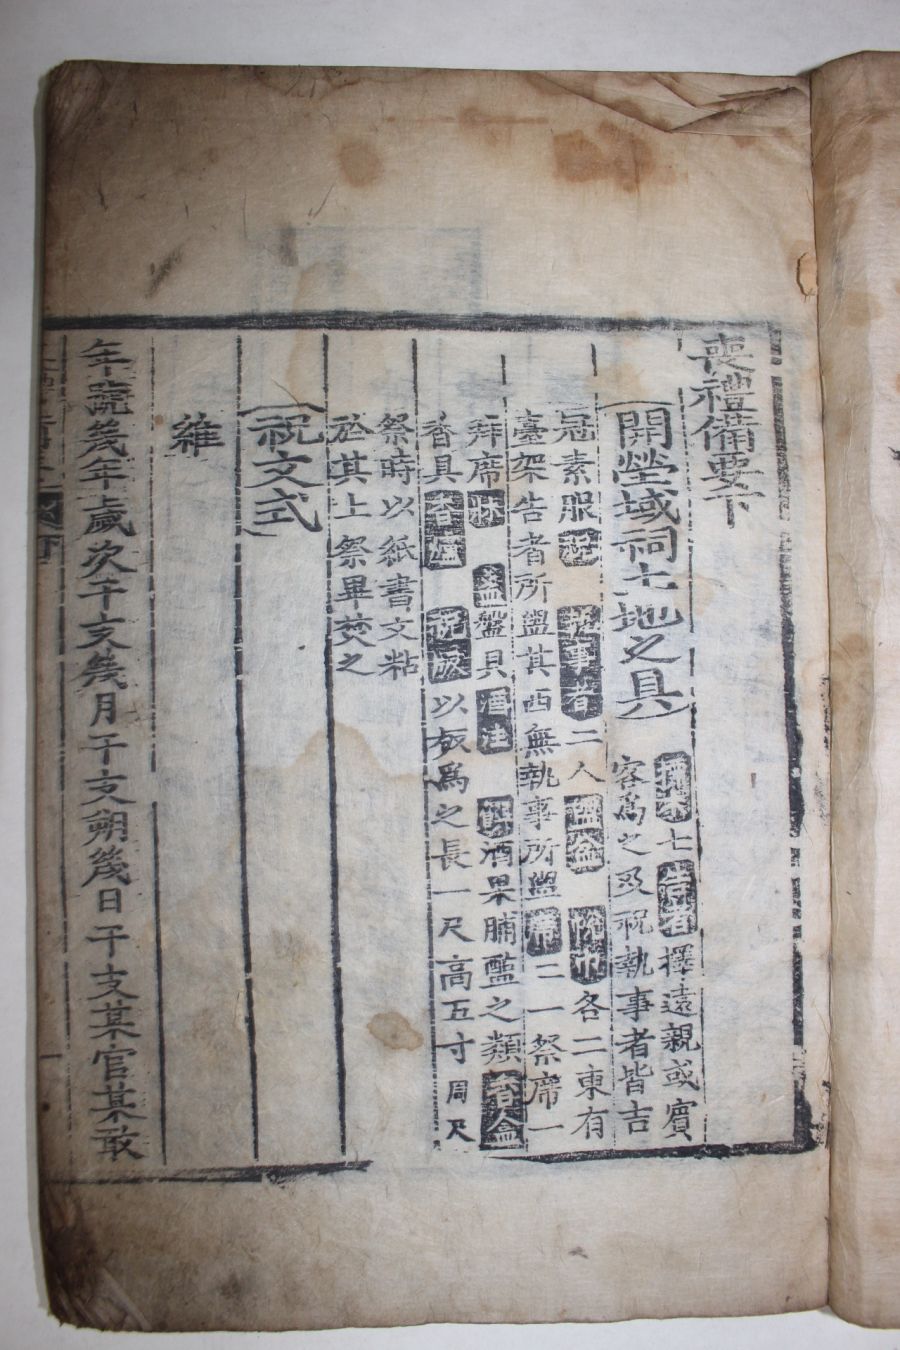 喪禮備要下
開塋域祠土地之具
標木七告者擇遠親或賓
客爲之及祝執事者皆吉
冠素服祝執事者二人盥盆帨巾各二東有
臺架告者所盥其西無執事所盥席二一祭席一
拜席牀盞盤具酒注饌酒果脯醢之類香盒
香具香爐祝版以板爲之長一尺高五寸周尺
祭時以紙書文粘
於其上祭畢焚之
祝文式
維
年號幾年歲次干支幾月干支朔幾日干支某官某敢